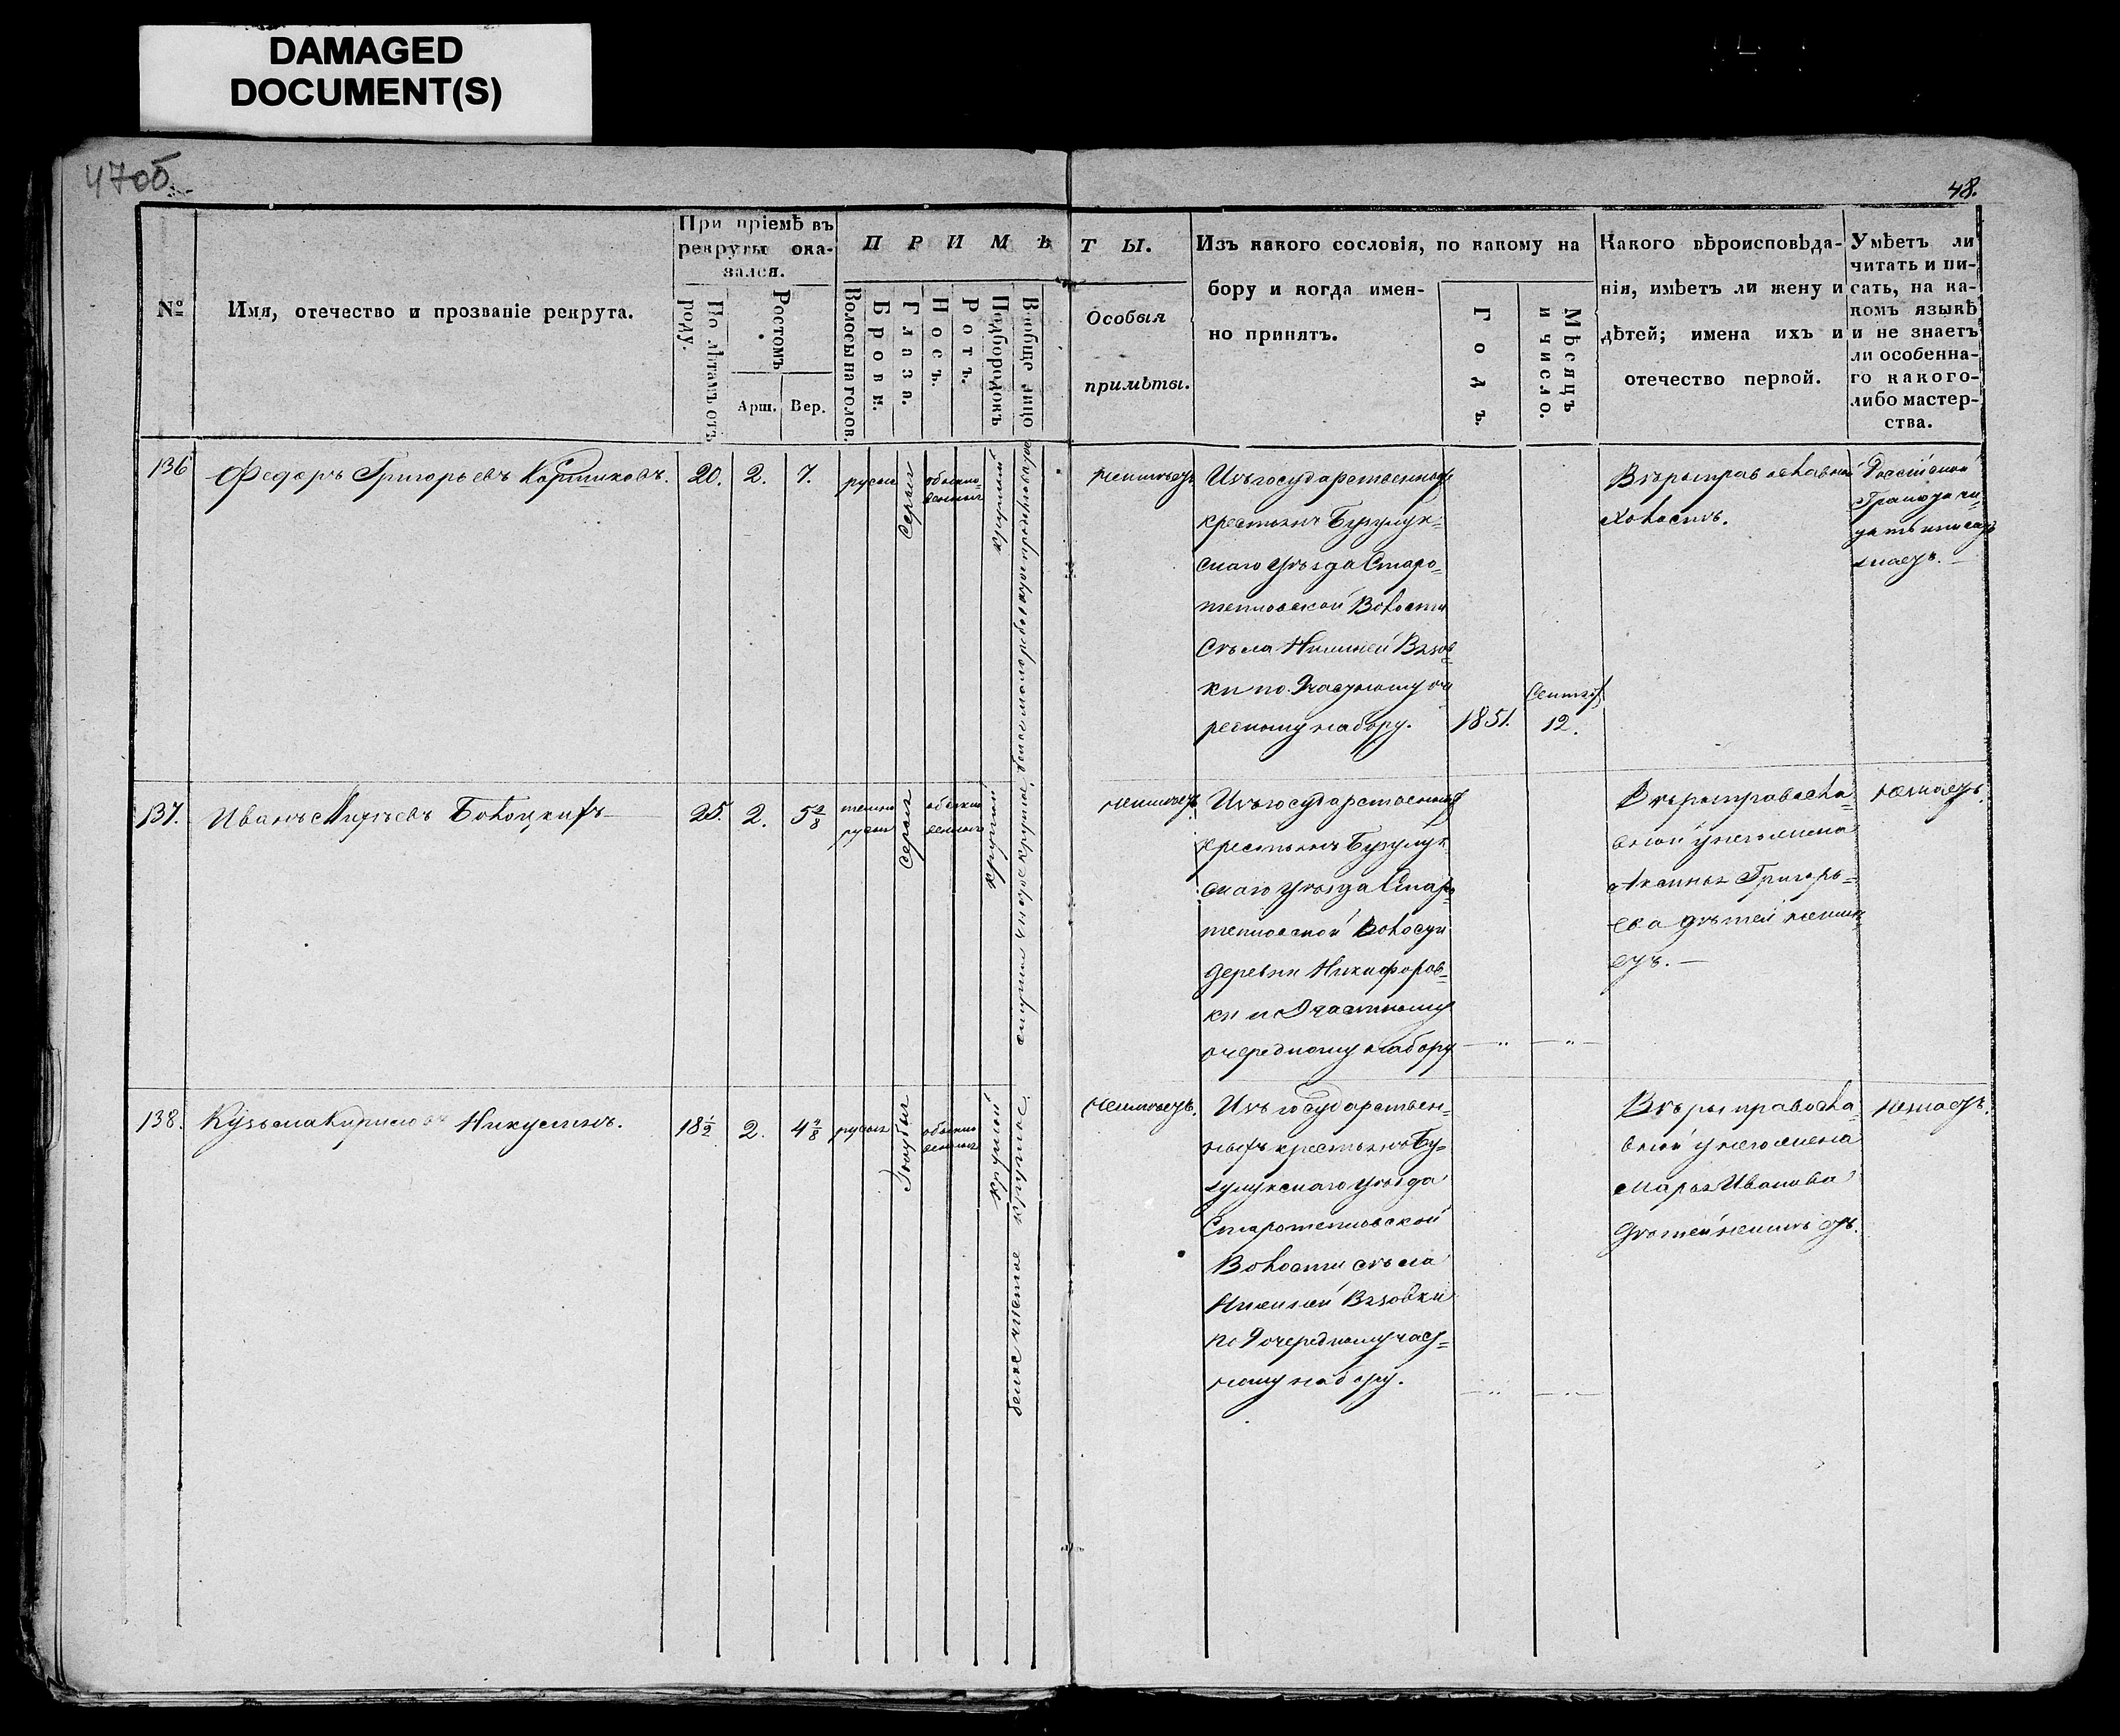 DAMAGED
DOCUMENT(S)
47об
48.
№
Имя, отечество и прозваніе рекрута.
При пріемѣ въ
рекруты ока-
зался.
По лѣтамъ отъ
роду.
Ростомъ
Арш.
Вер.
ПРИМѢТЫ.
Волосы на голов.
Брови.
Глаза.
Носъ.
Ротъ.
Подбородокъ
Вообще лицо
Особыя
примѣты.
Изъ какого сословія, по какому на
бору и когда имен-
но принятъ.
Годъ.
Мѣсяцъ
и число.
Какого вѣроисповѣда-
нія, имѣетъ ли жену и
дѣтей; имена ихъ и
отечество первой.
Умѣетъ ли
читать и пи-
сать, на ка-
комъ языкѣ
и не знаетъ
ли особенна-
го какого-
либо мастер-
ства.
136
Федоръ Григорьевъ
20.
2.
7.
русые
серые
обыкно-
венный
круглый
неимѣетъ
Изъ государственныхъ
крестьянъ Бузулук-
скаго уѣзда Старо-
тепловской Волости
Сѣла Нижней Вязов-
ки по Частному оче
редному набору.
1851.
Сентяб.
12.
Вѣры православной
холостъ.
Россійской
Грамоте чи-
тать и писать
знаетъ.
137.
Иванъ
25.
2.
5 2/8
темно
русые
серые
обыкно
венный
круглый
неимѣетъ
Изъ государственныхъ
крестьянъ Бузулук
скаго уѣзда Старо
тепловской Волости
деревни Никифоров-
ки по Частному
очередному набору
— " —
— " —
Вѣры правосла-
вной у него жена
Аксинья Григорь-
ева дѣтей неимѣ
етъ. —
незнаетъ.
138.
Кузьма Кириловъ Никулинъ.
18 1/2
2.
4 4/8
русые
Голубые
обыкно
венный
круглый
белое чистое круглое.
неимѣетъ.
Изъ государствен-
ныхъ крестьянъ Бу-
зулукскаго уѣзда
Старотепловской
Волости сѣла
Нижней Вязовки
по очередному час-
ному набору.
— " —
— " —
Вѣры правосла-
вной у него жена
Марья Иванова
дѣтей неимѣетъ.
незнаетъ.